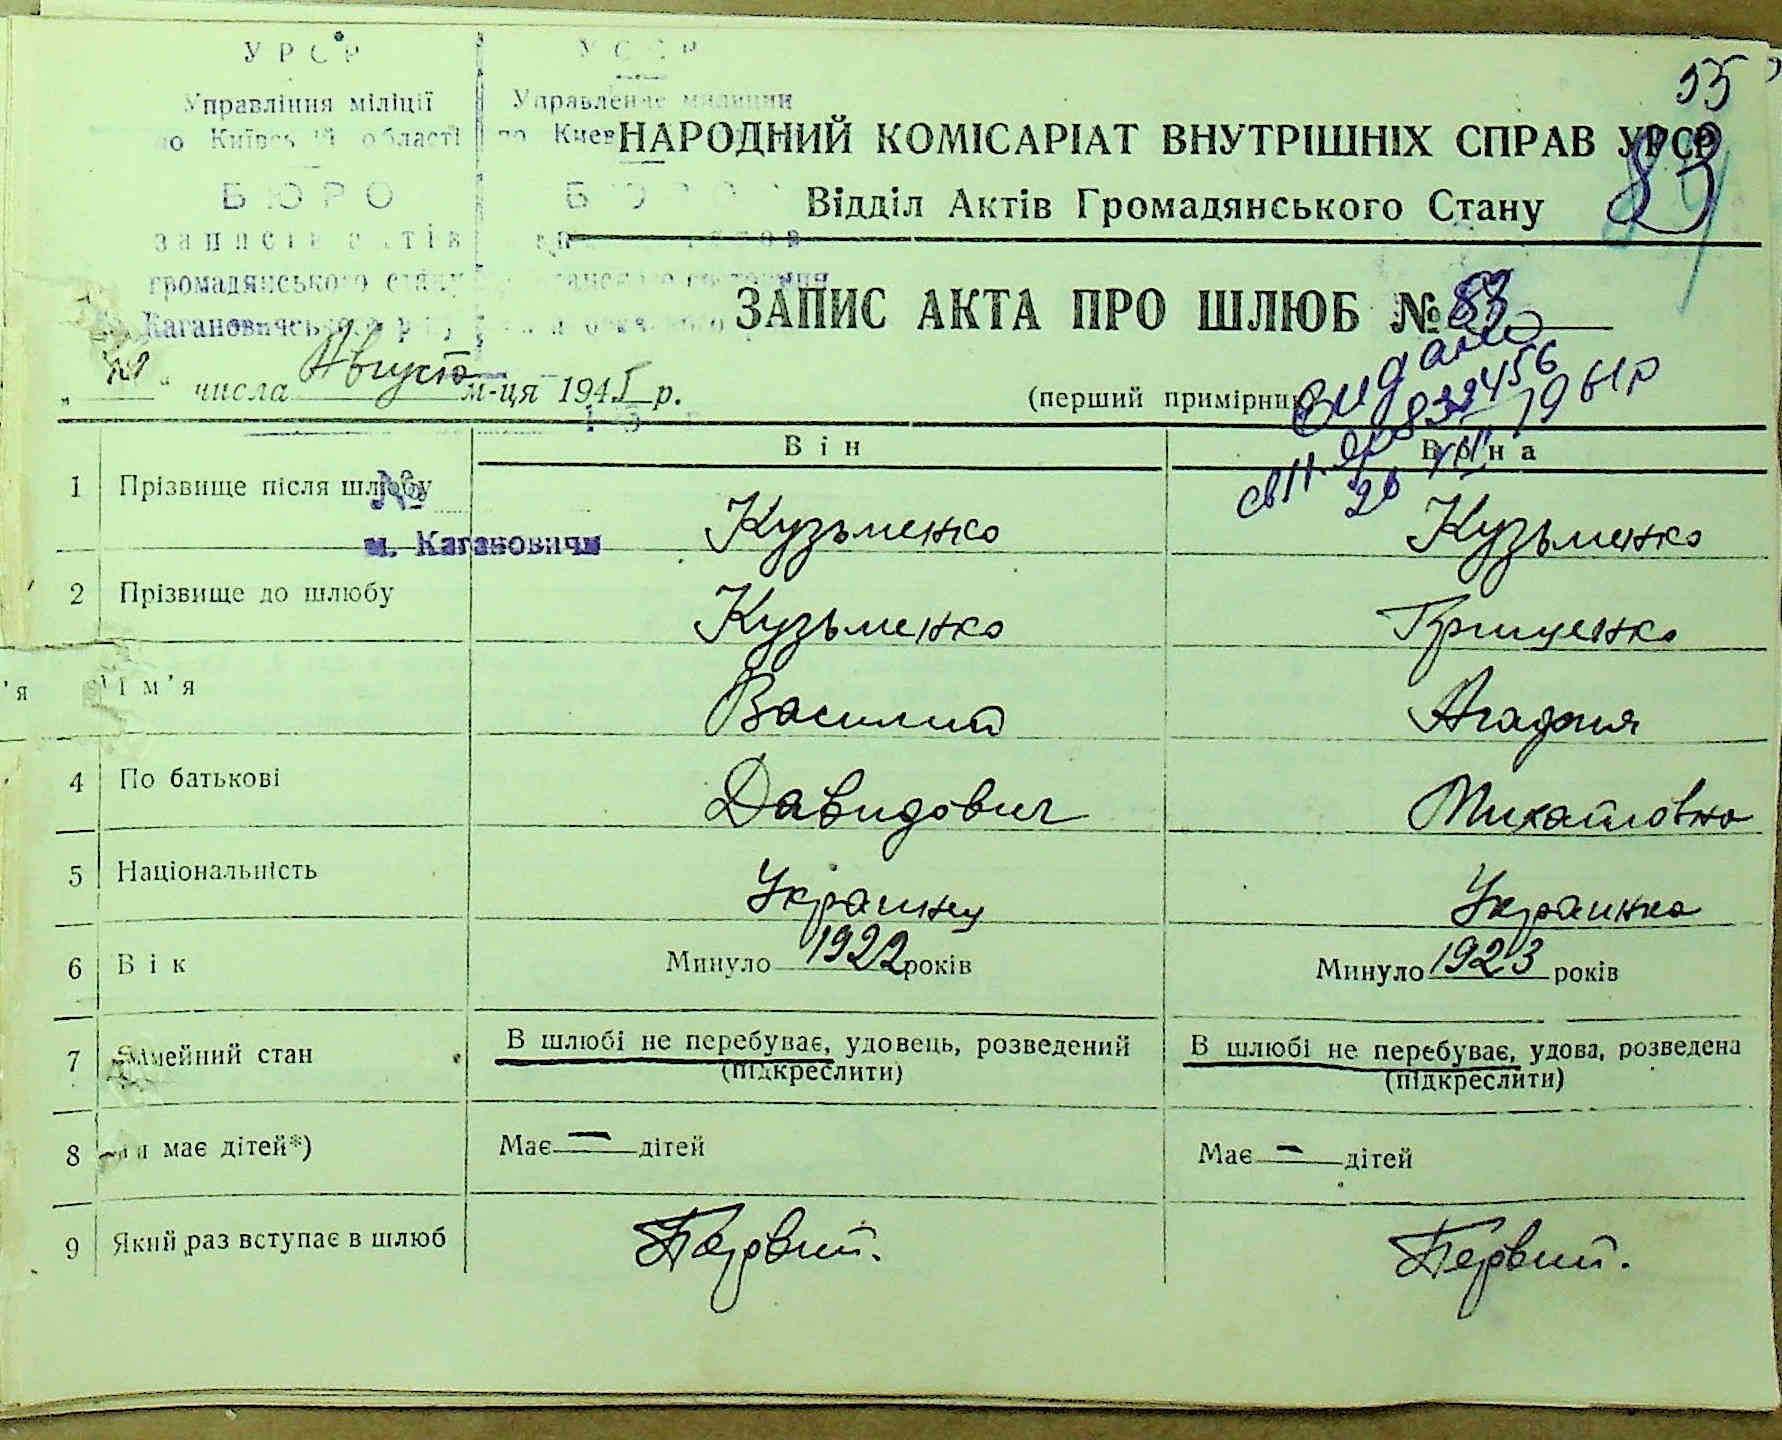 УРСР
Управління міліції
по Київській області
БЮРО
записів актів
громадянського стану
УССР
Управление милиции
по Киев
БЮРО
55
НАРОДНИЙ КОМІСАРІАТ ВНУТРІШНІХ СПРАВ УРСР
83
Відділ Актів Громадянського Стану
ЗАПИС АКТА ПРО ШЛЮБ № 83
" числа Августа м-ця 1945 р.
(перший примірник)
Видано
832456
26 VII 1961 р
№
м. Кагановичи
Він
Вона
1 Прізвище після шлюбу Кузьменко Кузьменко
2 Прізвище до шлюбу Кузьменко Грищенко
'я Ім'я Василий Агафия
4 По батькові Давидович Михайловна
5 Національність Украинец Украинка
6 Вік Минуло 1922 років Минуло 1923 років
7 Сімейний стан В шлюбі не перебуває, удовець, розведений В шлюбі не перебуває, удова, розведена
(підкреслити) (підкреслити)
8 має дітей*) Має — дітей Має — дітей
9 Який раз вступає в шлюб Первий. Первий.